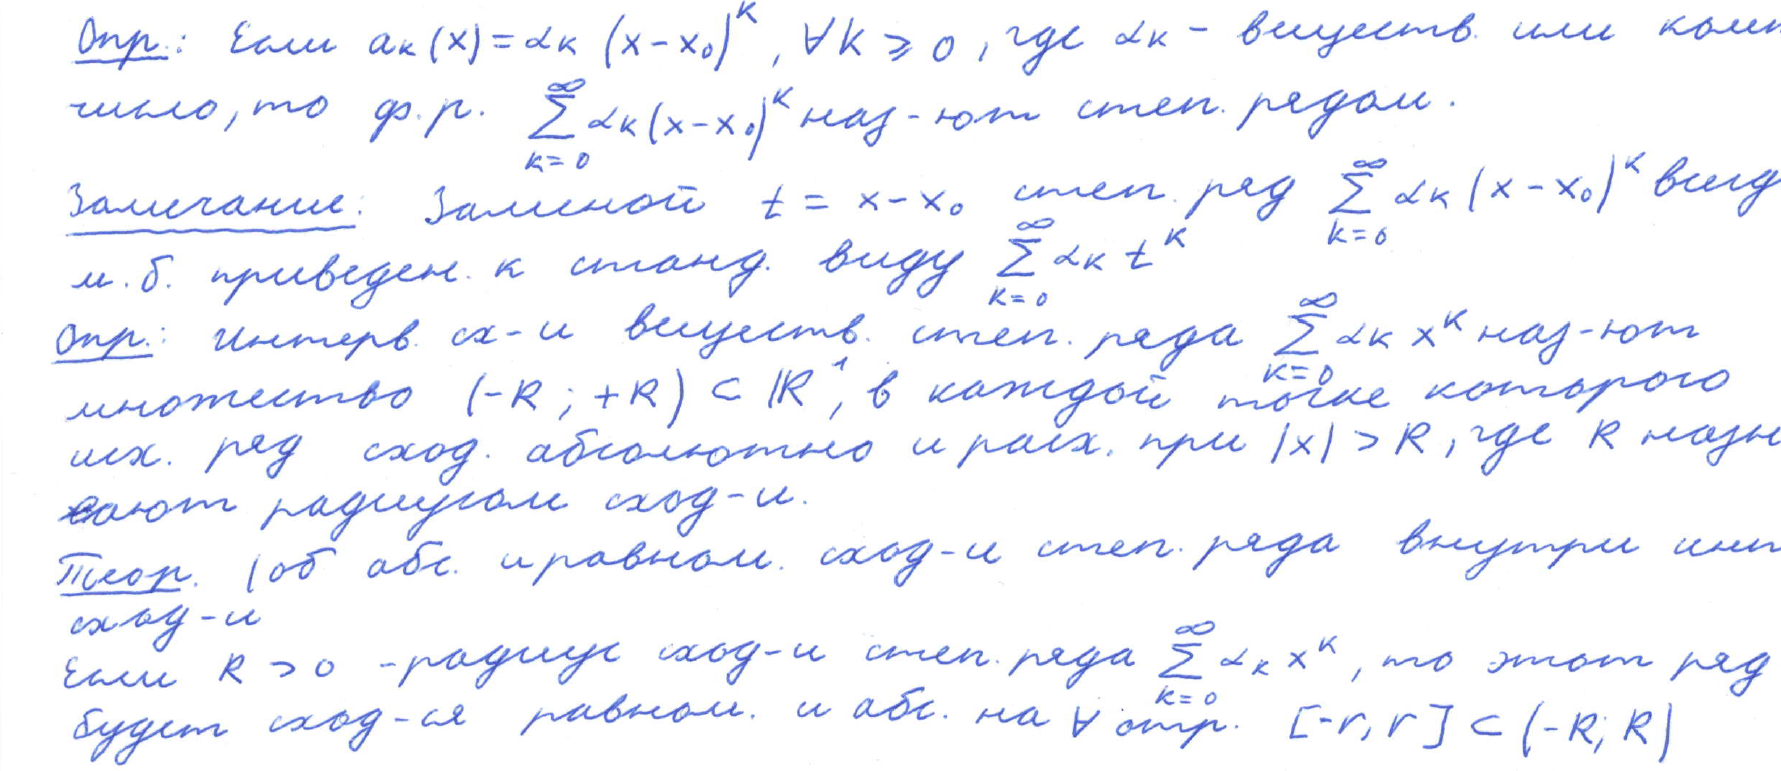 Опр.: Если aₖ(x) = αₖ (x-x₀)ᵏ, ∀k ⩾ 0, где αₖ - веществ. или комп
число, то ф.р. ∑_{k=0}^{∞} αₖ(x-x₀)ᵏ наз-ют степ. рядом.
Замечание: Заменой t = x-x₀ степ. ряд ∑_{k=0}^{∞} αₖ (x-x₀)ᵏ всегд
м.б. приведен. к станд. виду ∑_{k=0}^{∞} αₖ tᵏ
Опр.: Интерв. сх-и веществ. степ. ряда ∑_{k=0}^{∞} αₖ xᵏ наз-ют
множество (-R; +R) ⊂ ℝ¹, в каждой точке которого
исх. ряд сход. абсолютно и расх. при |x| > R, где R назы
вают радиусом сход-и.
Теор. (об абс. и равном. сход-и степ. ряда внутри инт
сход-и
Если R > 0 - радиус сход-и степ. ряда ∑_{k=0}^{∞} αₖ xᵏ, то этот ряд
будет сход-ся равном. и абс. на ∀ отр. [-r, r] ⊂ (-R; R)